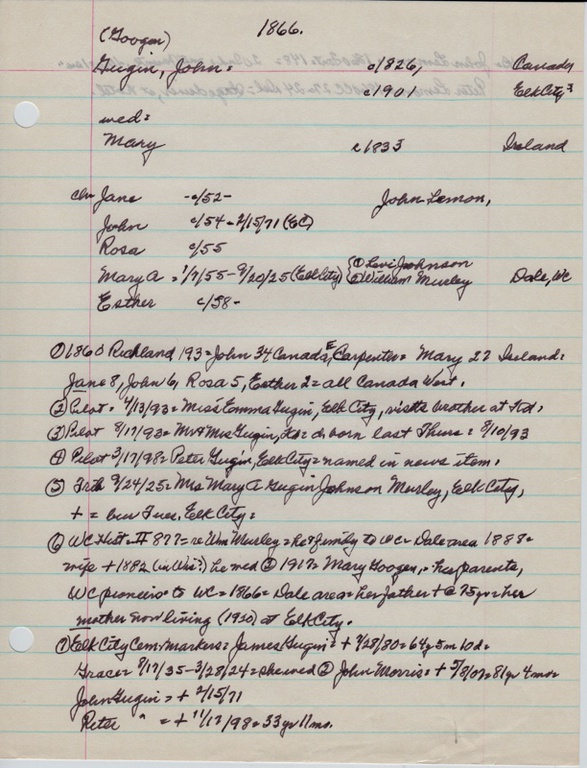 1866.
(Googin)
Gugin, John = c/1826, Canada
c/1901 Elk City
wed =
Mary c 1833 Ireland
chn Jane - c/52 - John Lemon,
John c/54 - 2/15/71 (EC)
Rosa c/55
Mary A = 1/7/55 - 9/20/25 (Elk City) (1) Levi Johnson
(2) William Murley Dale, WC
Esther c/58 -
(1) 1860 Richland 193 = John 34 Canada, E, Carpenter = Mary 27 Ireland:
Jane 8, John 6, Rosa 5, Esther 2 = all Canada West.
(2) Pilot = 4/13/93 = Miss Emma Gugin, Elk City, visits brother at Ftd.
(3) Pilot 8/17/93 = Mr & Mrs Gugin, = d born last Thurs = 8/10/93
(4) Pilot 3/17/98 = Peter Gugin, Elk City = named in news item.
(5) 9/24/25 = Mrs Mary A Gugin Johnson Murley, Elk City,
+ = Tues. Elk City =
(6) WC Hist = II 877 = re Wm Murley = he & family to WC = Dale area 1888 =
wife + 1882 (in Wis?) he wed (2) 1917 = Mary Googen, = her parents,
WC pioneers to WC = 1866 = Dale area = her father + @ 75 yr = her
mother now living (1920) at Elk City.
(7) Elk City Cem. Markers = James Gugin = + 7/28/80 = 64y 5m 10d =
Grace = 8/17/35 - 3/28/24 = she wed (2) John Morris = + 5/8/07 = 81 yr 4 mo =
John Gugin = + 2/15/71
Peter " = + 11/17/98 = 33 yr 11 mo.